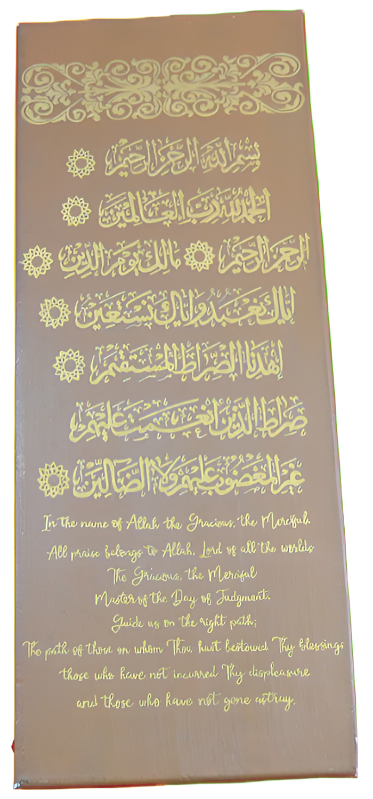 بسم الله الرحمن الرحيم
الحمد لله رب العالمين
الرحمن الرحيم مالك يوم الدين
اياك نعبد واياك نستعين
اهدنا الصراط المستقيم
صراط الذين انعمت عليهم
غير المغضوب عليهم ولا الضالين
In the name of Allah, the Gracious, the Merciful.
All praise belongs to Allah, Lord of all the worlds
The Gracious, the Merciful
Master of the Day of Judgment.
Guide us on the right path;
The path of those on whom Thou hast bestowed Thy blessings
those who have not incurred Thy displeasure
and those who have not gone astray.